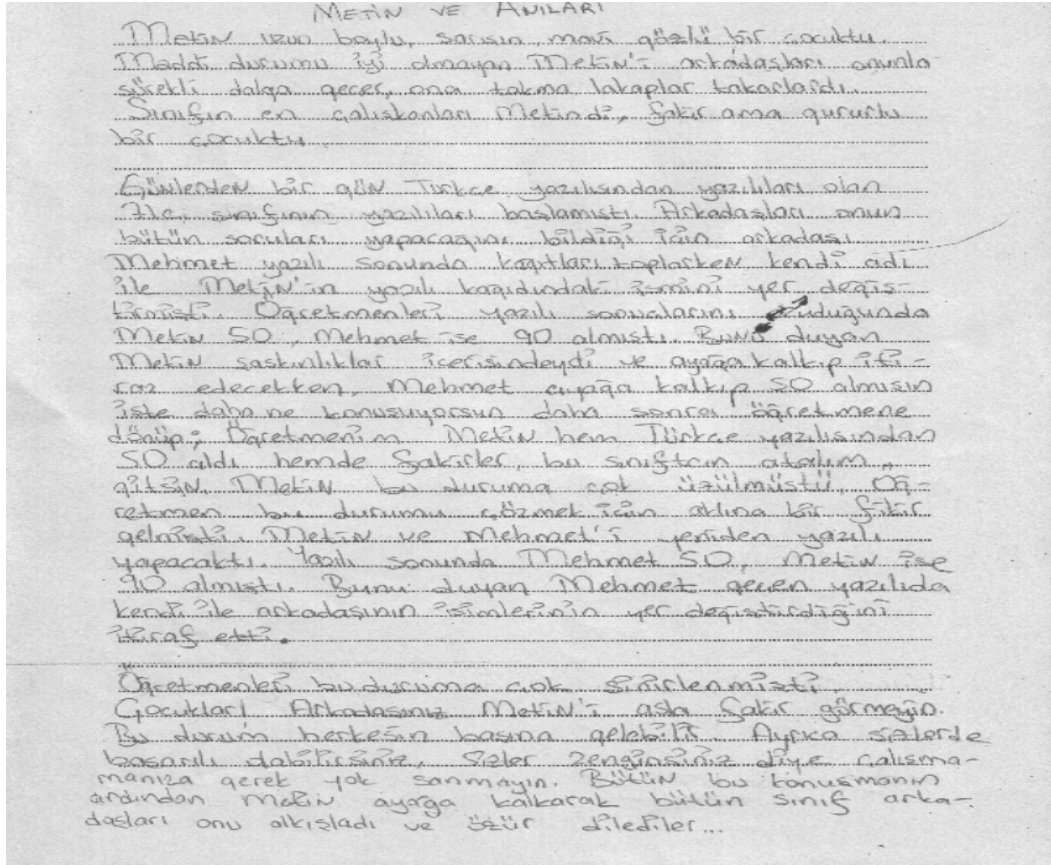 METİN VE ANILARI
Metin uzun boylu, sarışın, mavi gözlü bir çocuktu.
Maddi durumu iyi olmayan Metin'i arkadaşları onunla
sürekli dalga geçer, ona takma lakaplar takarlardı.
Sınıfın en çalışkanları Metindi, fakir ama gururlu
bir çocuktu.
Günlerden bir gün Türkçe yazılısından yazılıları olan
sınıfının yazılıları başlamıştı. Arkadaşları onun
bütün soruları yapacağını bildiği için arkadaşı
Mehmet yazılı sonunda kağıtları toplarken kendi adı
ile Metin'in yazılı kağıdındaki ismini yer değiş-
tirmişti. Öğretmenleri yazılı sonuçlarını okuduğunda
Metin 50, Mehmet ise 90 almıştı. Bunu duyan
Metin şaşkınlıklar içerisindeydi ve ayağa kalkıp iti-
raz edecekken, Mehmet ayağa kalkıp 50 almışsın
işte daha ne konuşuyorsun daha sonra öğretmene
dönüp; Öğretmenim Metin hem Türkçe yazılısından
50 aldı hemde fakirler, bu sınıftan atalım,
gitsin. Metin bu duruma çok üzülmüştü. Öğ-
retmen bu durumu çözmek için aklına bir fikir
gelmişti. Metin ve Mehmet'i yeniden yazılı
yapacaktı. Yazılı sonunda Mehmet 50, Metin ise
90 almıştı. Bunu duyan Mehmet geçen yazılıda
kendi ile arkadaşının isimlerinin yer değiştirdiğini
itiraf etti.
Öğretmenleri bu duruma çok sinirlenmişti.
Çocuklar! Arkadaşınız Metin'i asla fakir görmeyin.
Bu durum herkesin başına gelebilir. Ayrıca sizlerde
başarılı olabilirsiniz. Sizler zenginsiniz diye çalışma-
manıza gerek yok sanmayın. Bütün bu konuşmanın
ardından Metin ayağa kalkarak bütün sınıf arka-
daşları onu alkışladı ve özür dilediler...